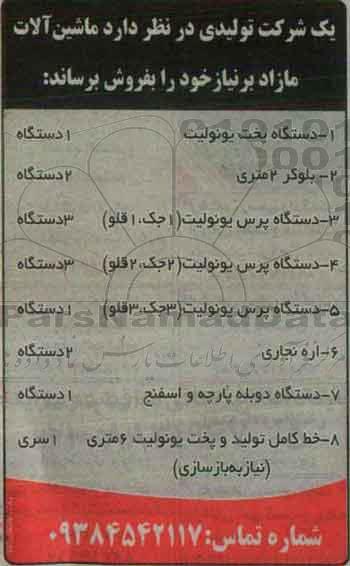 یک شرکت تولیدی در نظر دارد ماشین‌آلات
مازاد برنیاز خود را بفروش برساند:
۱-دستگاه پخت یونولیت ۱دستگاه
۲- بلوکر ۲متری ۲دستگاه
۳-دستگاه پرس یونولیت(۱جک،۱قلو) ۳دستگاه
۴-دستگاه پرس یونولیت(۲جک،۲قلو) ۳دستگاه
۵-دستگاه پرس یونولیت(۳جک،۳قلو) ۱دستگاه
ParsNamadData
۶-اره نجاری ۲دستگاه
۷-دستگاه دوبله پارچه و اسفنج ۱دستگاه
۸-خط کامل تولید و پخت یونولیت ۶متری ۱سری
(نیازبه‌بازسازی)
شماره تماس:۰۹۳۸۴۵۴۲۱۱۷